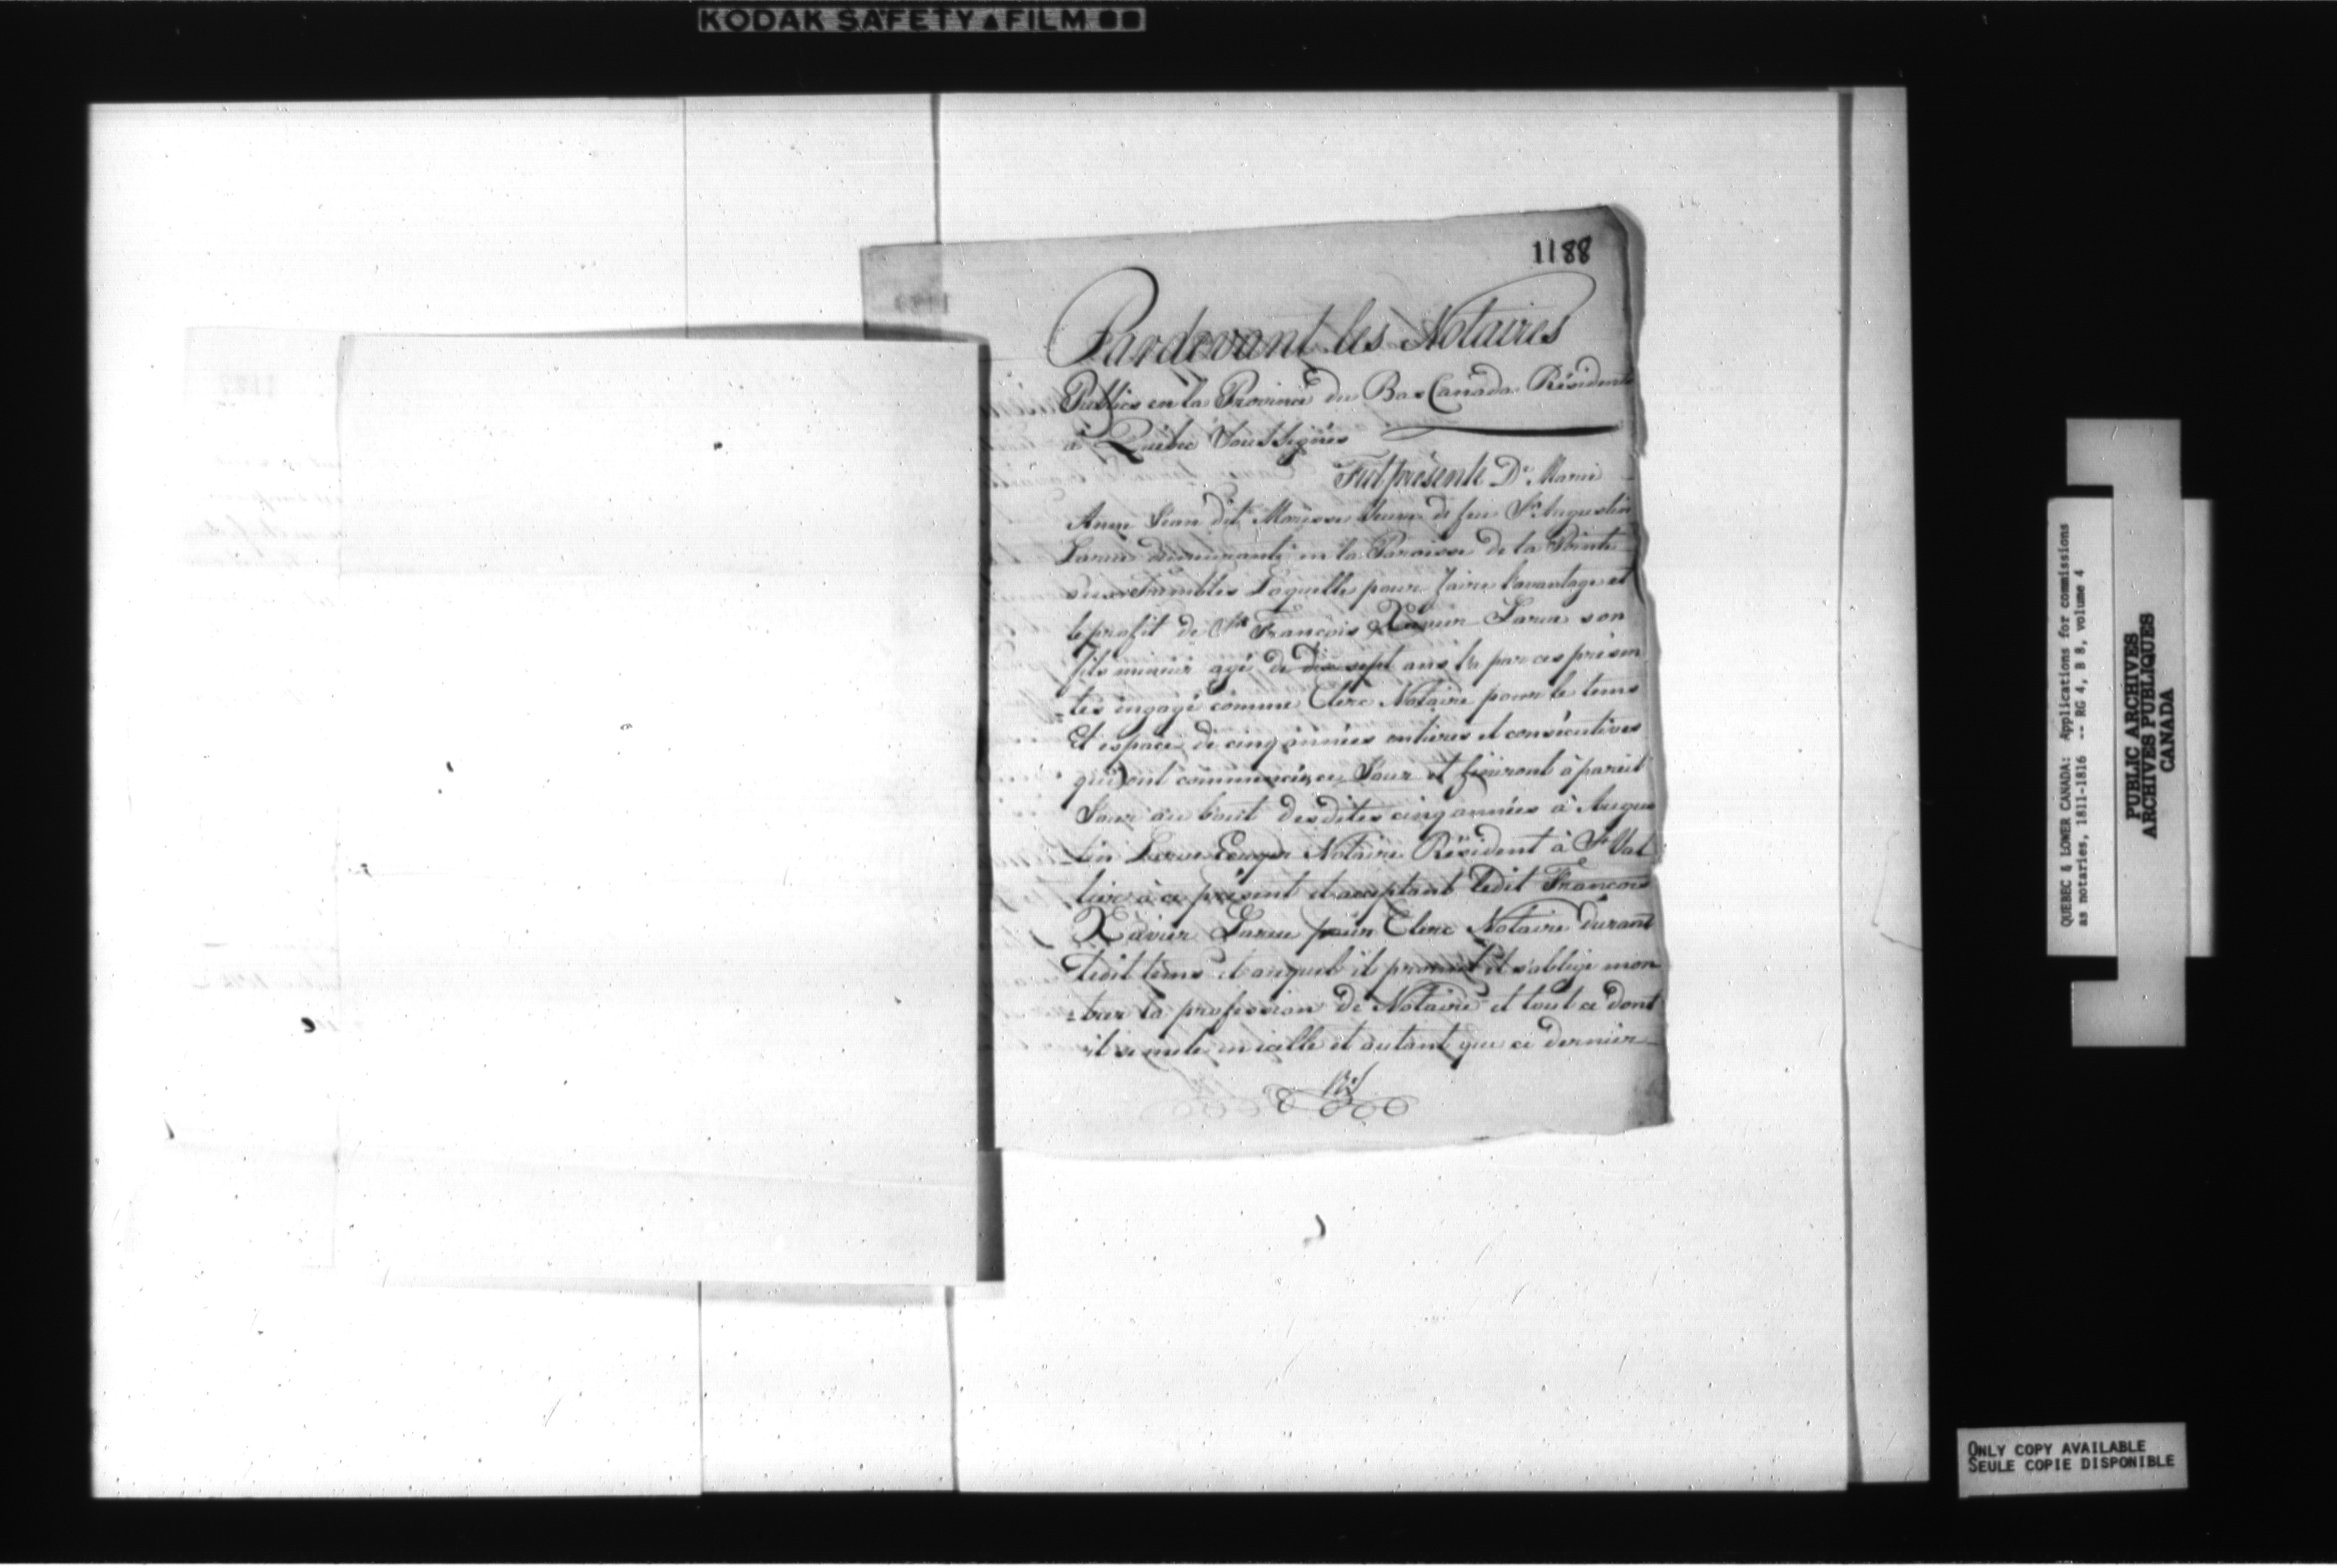 KODAK SAFETY FILM
1188
Pardevant les Notaires
Publics en la Province du Bas Canada Résident
à Québec Soussignés
Fut présente De. Marie
Anne Jean dit Veuve de feu Sr. Augustin
Larue demeurante en la Paroisse de la Pointe
aux Trembles Laquelle pour faire l'avantage et
le profit de Sr. François Xavier Larue son
fils mineur agé de dix sept ans l'a par ces présen
tes engagé comme Clerc Notaire pour le tems
Et espace de cinq années entieres et consécutives
qui ont commencé ce Jour et finiront à pareil
Jour au bout desdites cinq années à Augus
tin Larue Ecuyer Notaire Résident à St. Val
lier à ce présent et acceptant Ledit François
Xavier Larue pour Clerc Notaire durant
Ledit tems et auquel il promet et s'oblige mon
-trer la profession de Notaire et tout ce dont
il se mele en icelle et autant que ce dernier
QUEBEC & LOWER CANADA: Applications for commissions
as notaries, 1811-1816 -- RG 4, B 8, volume 4
PUBLIC ARCHIVES
ARCHIVES PUBLIQUES
CANADA
ONLY COPY AVAILABLE
SEULE COPIE DISPONIBLE